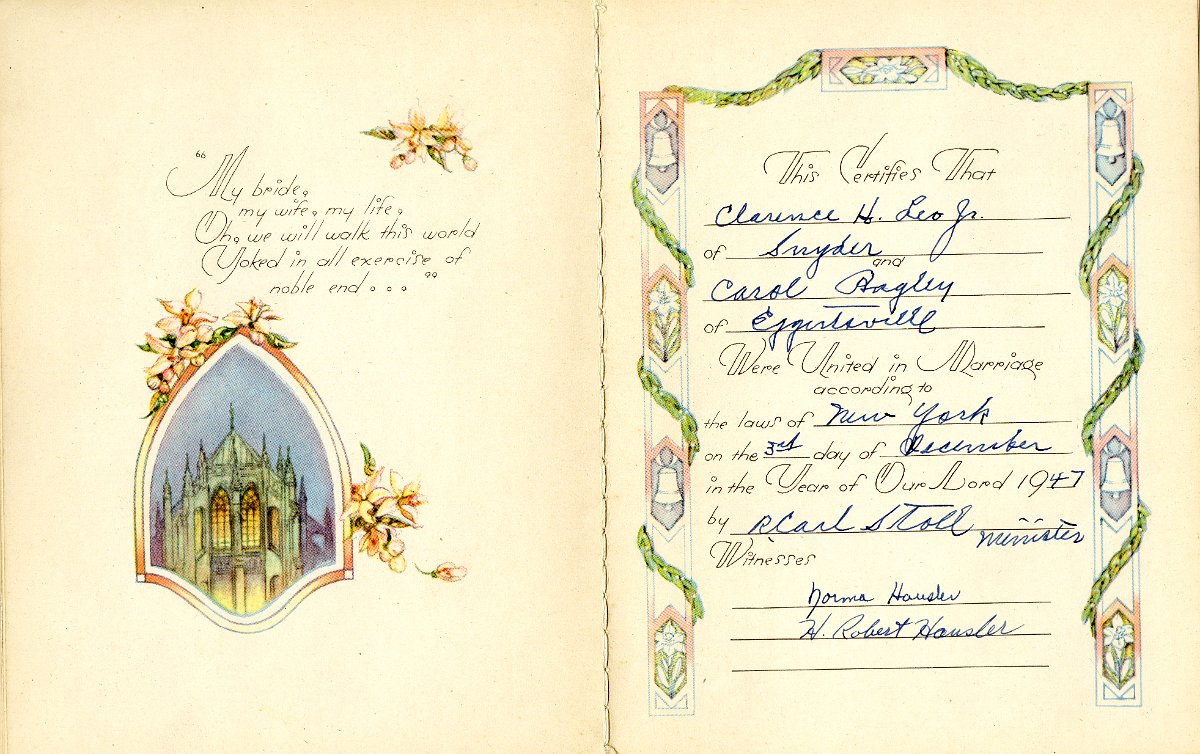 “My bride,
my wife, my life,
Oh, we will walk this world
Yoked in all exercise of
noble end . . .”
This Certifies That
Clarence H. Leo Jr.
of Snyder
and
Carol Hagley
of Eggertsville
Were United in Marriage
according to
the laws of New York
on the 3rd day of December
in the Year of Our Lord 1947
by R Carl Stoll
Minister
Witnesses
Norma Hausler
H. Robert Hausler